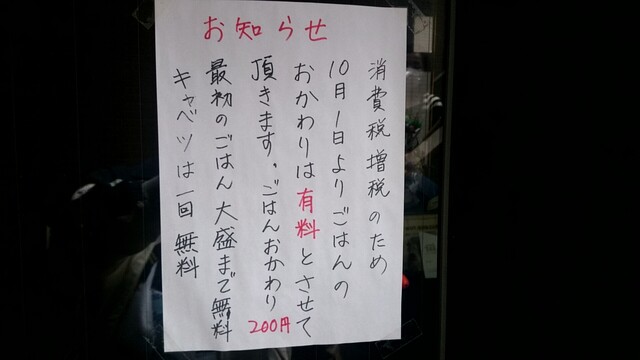 お知らせ
消費税増税のため
10月1日よりごはんの
おかわりは有料とさせて
頂きます。ごはんおかわり200円
最初のごはん大盛まで無料
キャベツは一回無料